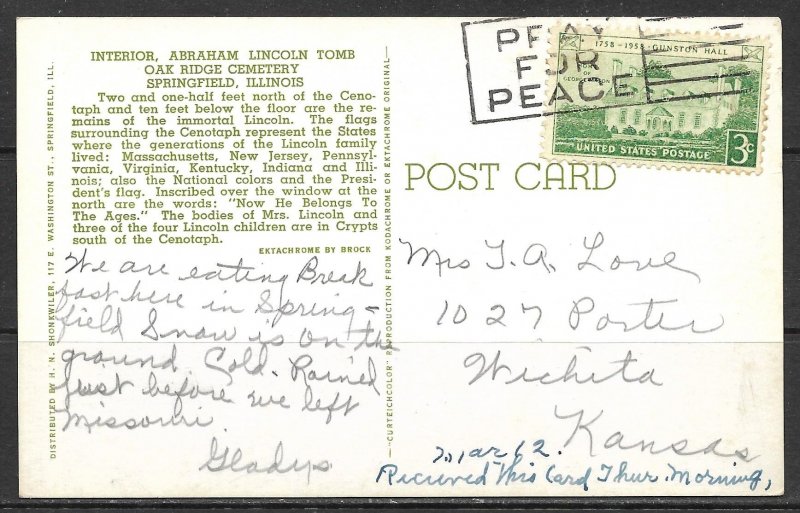 INTERIOR, ABRAHAM LINCOLN TOMB
OAK RIDGE CEMETERY
SPRINGFIELD, ILLINOIS
Two and one-half feet north of the Ceno-
taph and ten feet below the floor are the re-
mains of the immortal Lincoln. The flags
surrounding the Cenotaph represent the States
where the generations of the Lincoln family
lived: Massachusetts, New Jersey, Pennsyl-
vania, Virginia, Kentucky, Indiana and Illi-
nois; also the National colors and the Presi-
dent's flag. Inscribed over the window at the
north are the words: "Now He Belongs To
The Ages." The bodies of Mrs. Lincoln and
three of the four Lincoln children are in Crypts
south of the Cenotaph.
EKTACHROME BY BROCK
We are eating Break
fast here in Spring-
field Snow is on the
ground. Cold. Rained
just before we left
Missouri.
Gladys
DISTRIBUTED BY H. N. SHONKWILER, 117 E. WASHINGTON ST., SPRINGFIELD, ILL.
—"CURTEICHCOLOR" REPRODUCTION FROM KODACHROME OR EKTACHROME ORIGINAL—
POST CARD
PRAY
FOR
PEACE
1758-1958 GUNSTON HALL
HOME OF
GEORGE MASON
UNITED STATES POSTAGE
3c
Mrs T. A. Love
1027 Porter
Wichita
Kansas
Mar 62.
Recieved this Card Thur. Morning,